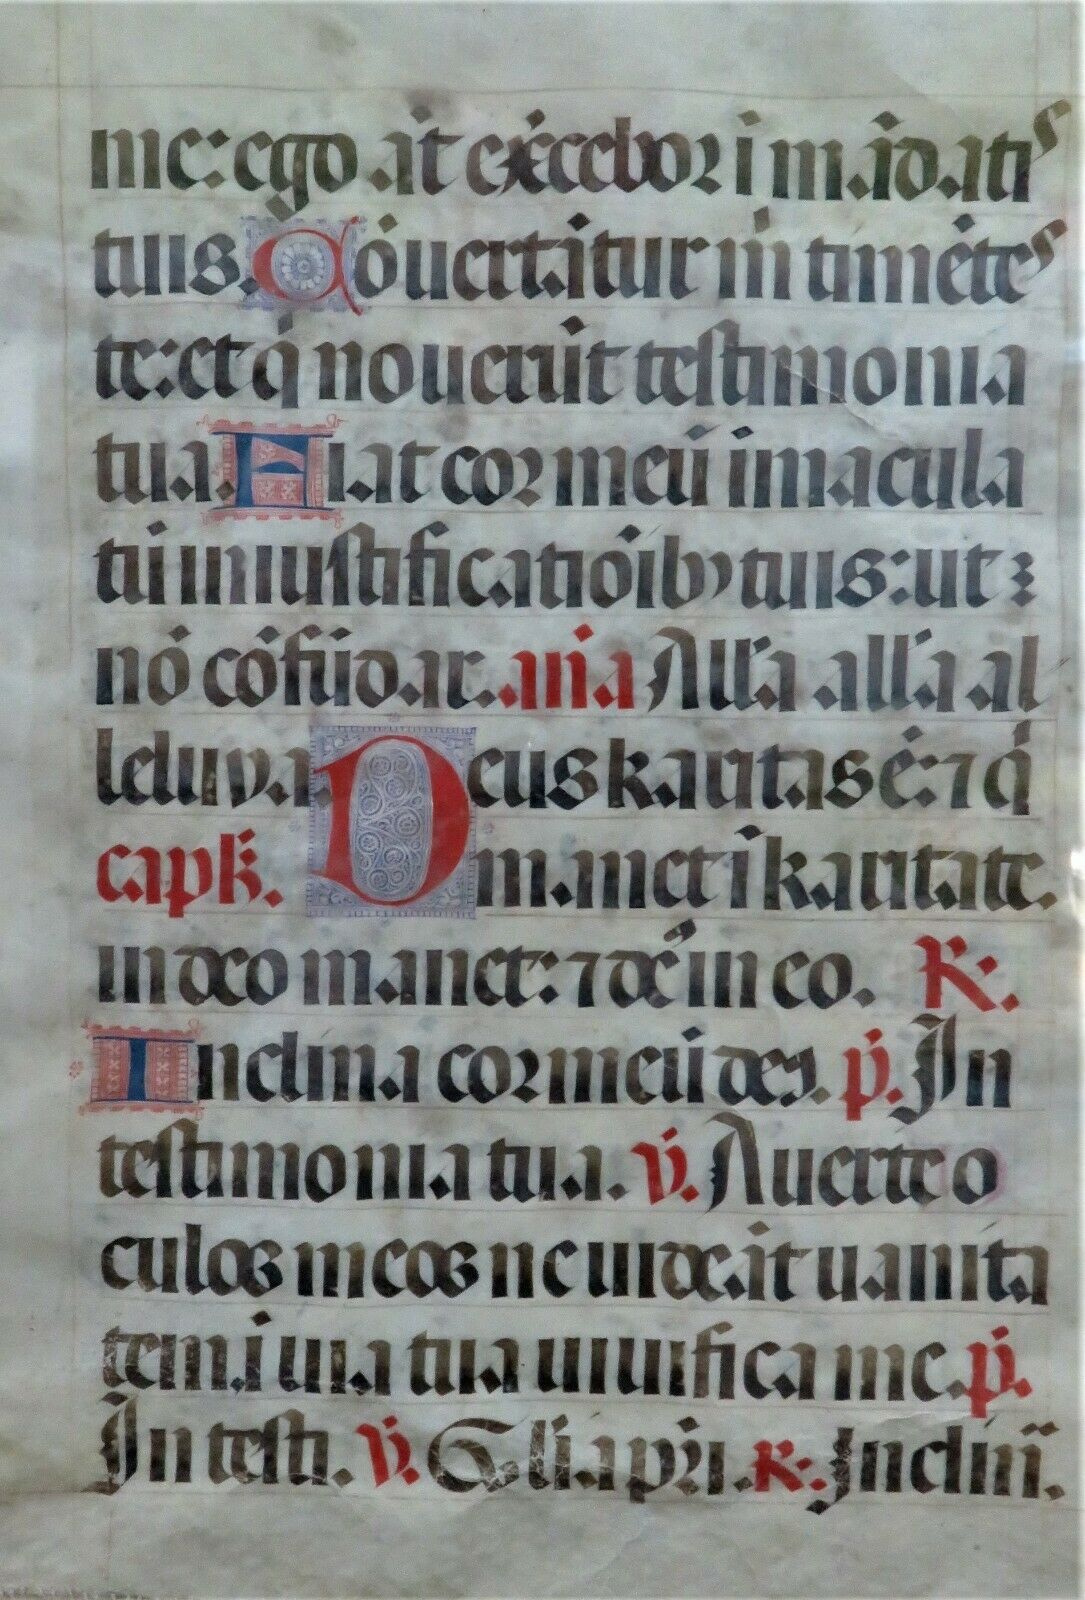 me: ego aūt exērcebor ī mādatis
tuis. Cōuertātur m̄ timētes
te: et q̄ nouerūt testimonia
tua. Fiat cor meū īmacula
tū in iustificatiōib⁹ tuis: ut
nō cōfūdar. an̄a All'a all'a al
leluya. Deus karitas ē: ⁊ q̄
capľ. manet ī karitate.
in deo manet: ⁊ de' in eo. R:.
Inclina cor meū des. p̄. In
testimonia tua. v̄. Auerte o
culos meos ne uideāt uanita
tem. ī uia tua uiuifica me. p̄.
In testi. v̄. Glīa pr̄i. R:. Inclin̄.